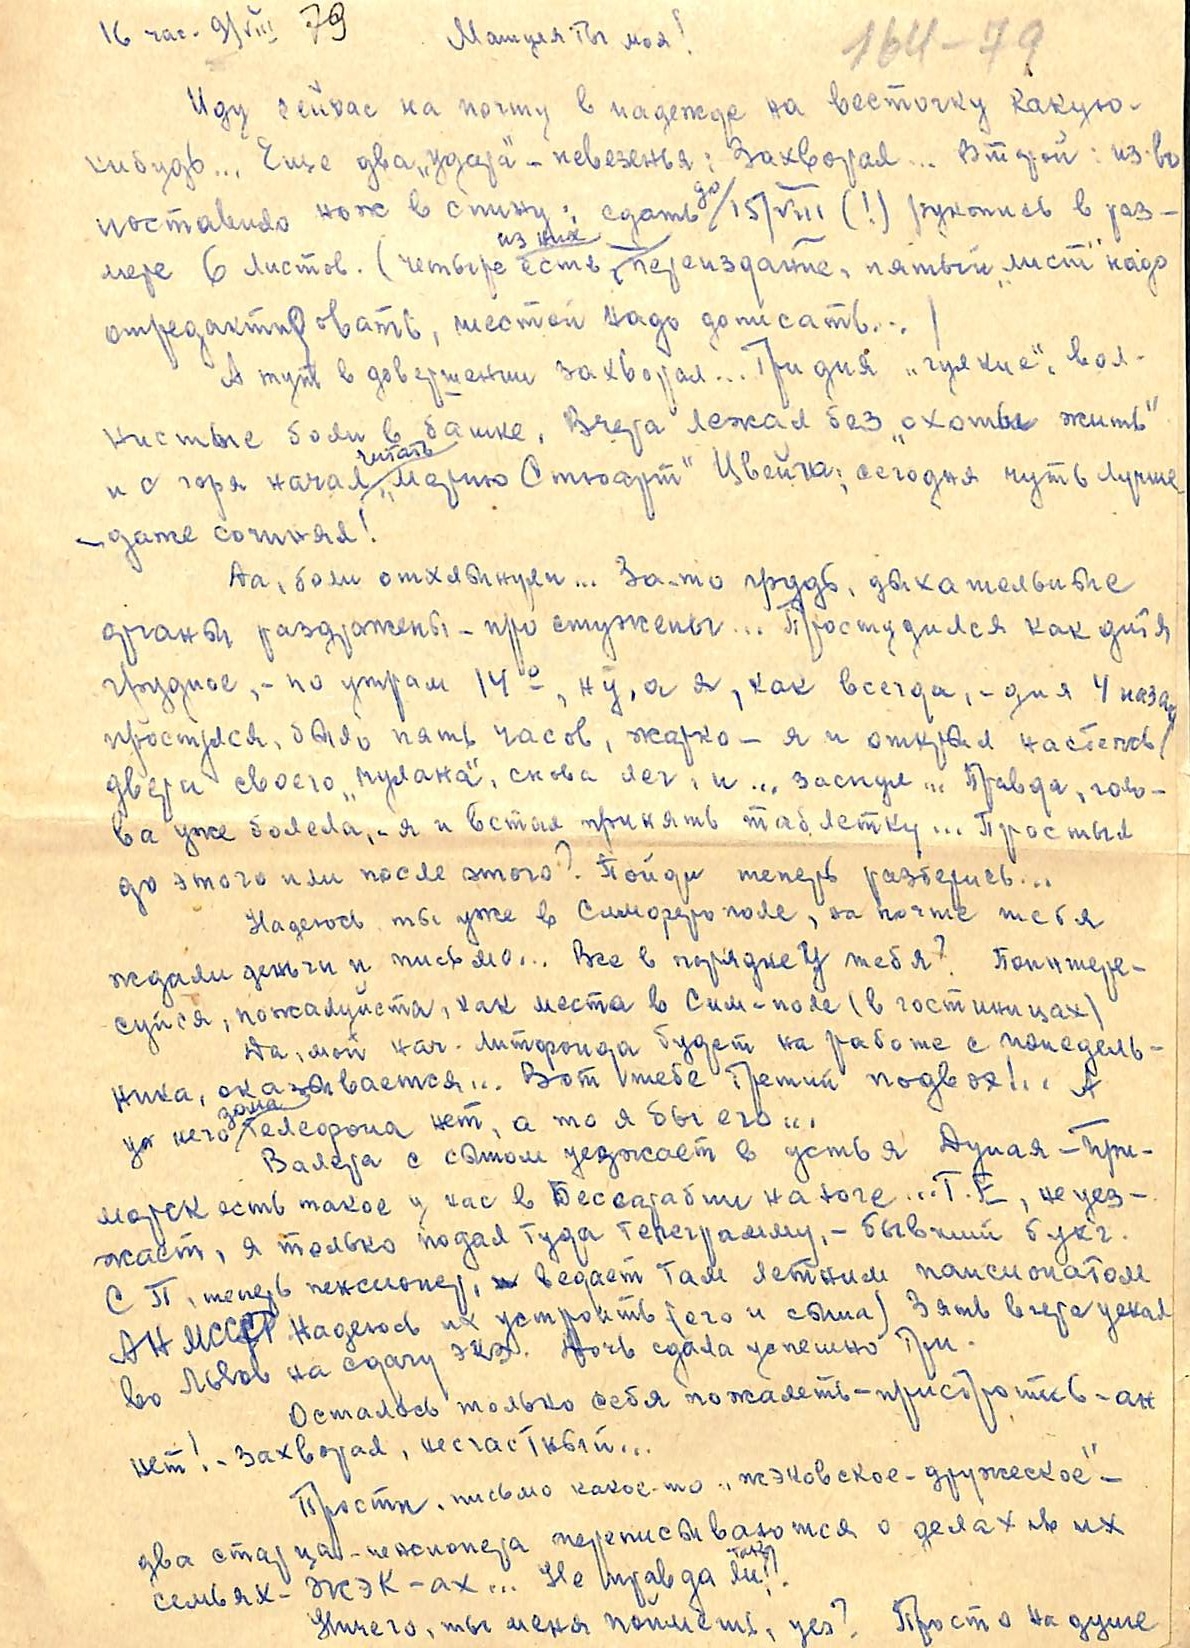 16 час. 9/VIII 79 Мамуля ты моя! 164-79
Иду сейчас на почту в надежде на весточку какую-
нибудь... Еще два „удара" - невезенья: Захворал... Второй: из-во
поставило нож в спину: сдать до/15/VIII (!) рукопись в раз-
мере 6 листов. (Четыре из них есть, переиздание, пятый „лист" надо
отредактировать, шестой надо дописать...)
А тут в довершении захворал... Три дня „гулкие", вол-
нистые боли в башке. Вчера лежал без „охоты жить"
и с горя начал читать „Марию Стюарт" Цвейга; сегодня чуть лучше
- даже сочинял!
Да, боли отхлынули... За-то грудь, дыхательные
органы раздражены - простужены... Простудился как дитя
грудное, - по утрам 14°, ну, а я, как всегда, - дня 4 назад
проснулся, было пять часов, жарко - я и открыл настежь
двери своего „чулана", снова лег, и... заснул... Правда, голо-
ва уже болела, - я и встал принять таблетку... Простыл
до этого или после этого? Пойди теперь разберись...
Надеюсь ты уже в Симферополе, на почте тебя
ждали деньги и письмо... Все в порядке у тебя? Поинтере-
суйся, пожалуйста, как места в Сим-поле (в гостиницах)
Да, мой нач. Литфонда будет на работе с понедель-
ника, оказывается... Вот тебе третий подвох!.. А
у него дома телефона нет, а то я бы его...
Валера с сыном уезжает в устья Дуная - При-
морск есть такое у нас в Бессарабии на юге... Т.Е, не уез-
жает, я только подал туда телеграмму, - бывший бухг.
С П, теперь пенсионер, ведает там летним пансионатом
АН МССР Надеюсь их устроить (его и сына) Зять вчера уехал
во Львов на сдачу экз. Дочь сдала успешно три.
Осталось только себя пожалеть - приободрить - ан
нет! - захворал, несчастный...
Прости, письмо какое-то „жэковское - дружеское" -
два старца-пенсионера переписываются о делах в их
семьях - ЖЭК-ах... Не правда ли?!
Ничего, ты меня поймешь, уез? Просто на душе